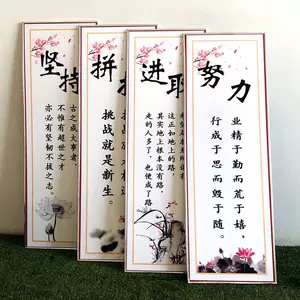 坚持
古之成大事者,
不惟有超世之才
亦必有坚韧不拔之志。
拼
挑战就是新生。
进取
这正如地上的路
其实地上根本没有路,
走的人多了,也便成了路
努力
业精于勤而荒于嬉,
行成于思而毁于随。